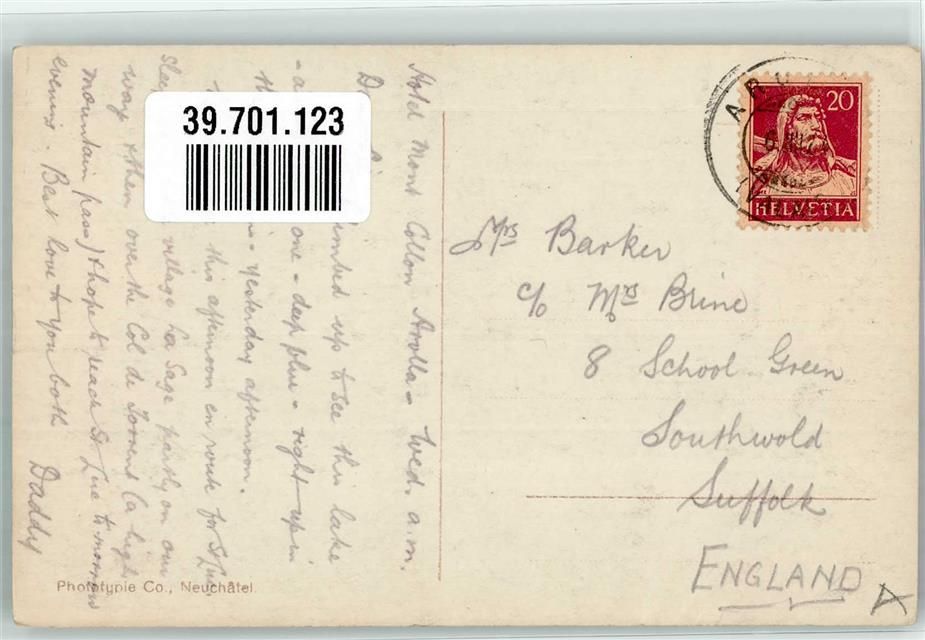 Hotel Mont Collon Arolla - Wed. a.m.
climbed up to see this lake
one - deep blue - right up in
Yesterday afternoon.
this afternoon en route for St Luc
village La Sage partly on our
way & then over the Col de Torrent (a high
mountain pass) & hope to reach St Luc to-morrow
evening. Best love to you both
Daddy
39.701.123
20
HELVETIA
Mrs Barker
c/o Mrs Brine
8 School Green
Southwold
Suffolk
ENGLAND
Phototypie Co., Neuchâtel